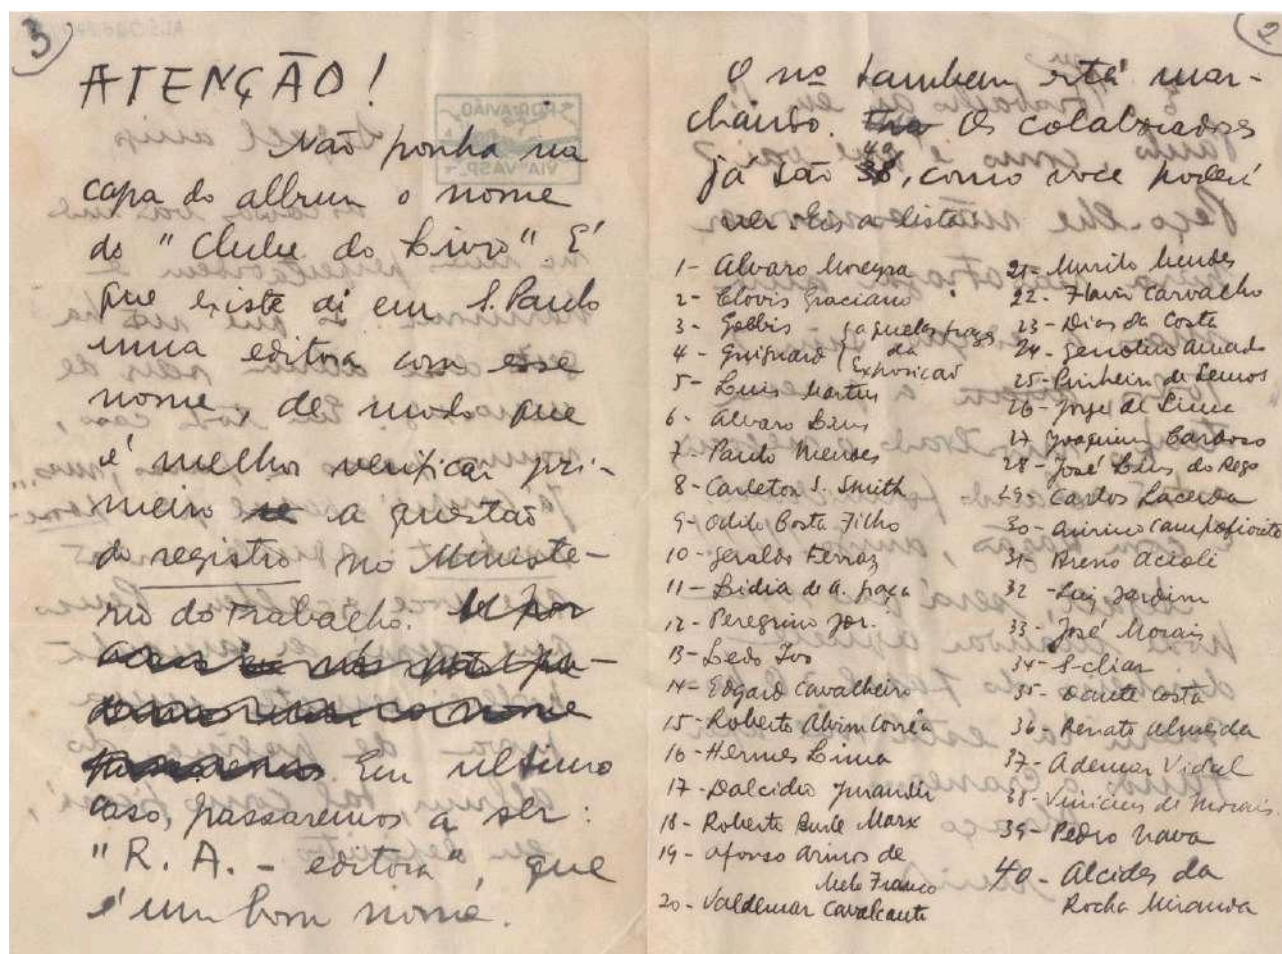 3
ATENÇÃO!
Não ponha na
capa do album o nome
do "Clube do Livro". É
que existe aí em S. Paulo
uma editora com esse
nome, de modo que
é melhor verificar pri-
meiro a questão
do registro no Ministe-
rio do Trabalho.
Em ultimo
caso, passaremos a ser:
"R. A. - editora", que
é um bom nome.
2
O nº tambem está mar-
chando. Os colaboradores
já são 40, como voce poderá
ver. Eis a lista
1- Alvaro Moreyra
2- Clovis Graciano
3- Gobbis -
4- Guignard
(aquelas fotogs
da
Exposição
5- Luis Martins
6- Alvaro Lins
7- Paulo Mendes
8- Carleton S. Smith
9- Odilo Costa Filho
10- Geraldo Ferraz
11- Lidia de A. Graça
12- Peregrino Jor.
13- Ledo Ivo
14- Edgard Cavalheiro
15- Roberto Alvim Corrêa
16- Hermes Lima
17- Dalcidio Jurandir
18- Roberto Burle Marx
19- Afonso Arinos de
Melo Franco
20- Valdemar Cavalcanti
21- Murilo Mendes
22- Flavio Carvalho
23- Dias da Costa
24- Genolino Amado
25- Pinheiro de Lemos
26- Jorge de Lima
27 Joaquim Cardoso
28- José Lins do Rego
29- Carlos Lacerda
30- Quirino Campofiorito
31- Breno Acioli
32- Luis Jardim
33- José Morais
34- Scliar
35- Dante Costa
36- Renato Almeida
37- Ademar Vidal
38- Vinicius de Morais
39- Pedro Nava
40- Alcides da
Rocha Miranda